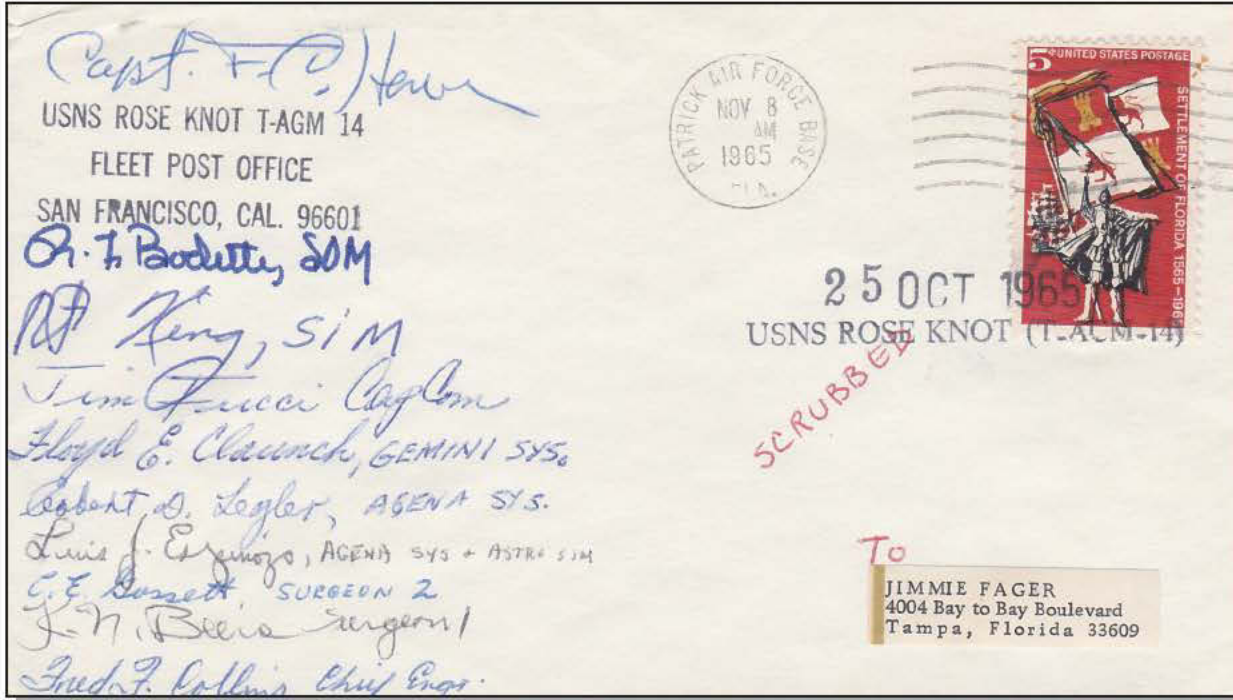 Capt. F. C.
USNS ROSE KNOT T-AGM 14
FLEET POST OFFICE
SAN FRANCISCO, CAL. 96601
R. F. Bodette, SOM
King, SIM
Jim Fucci CapCom
Floyd E. Claunch, GEMINI SYS.
Robert D. Legler, AGENA SYS.
Luis J. Espinoza, AGENA SYS + ASTRO SIM
C.E. Gossett SURGEON 2
K. N. Beers Surgeon 1
Fred F. Collins Chief Engr.
PATRICK AIR FORCE BASE
NOV 8
AM
1965
FLA.
5¢ UNITED STATES POSTAGE
SETTLEMENT OF FLORIDA 1565-1965
25 OCT 1965
USNS ROSE KNOT (T-AGM-14)
SCRUBBED
TO
JIMMIE FAGER
4004 Bay to Bay Boulevard
Tampa, Florida 33609